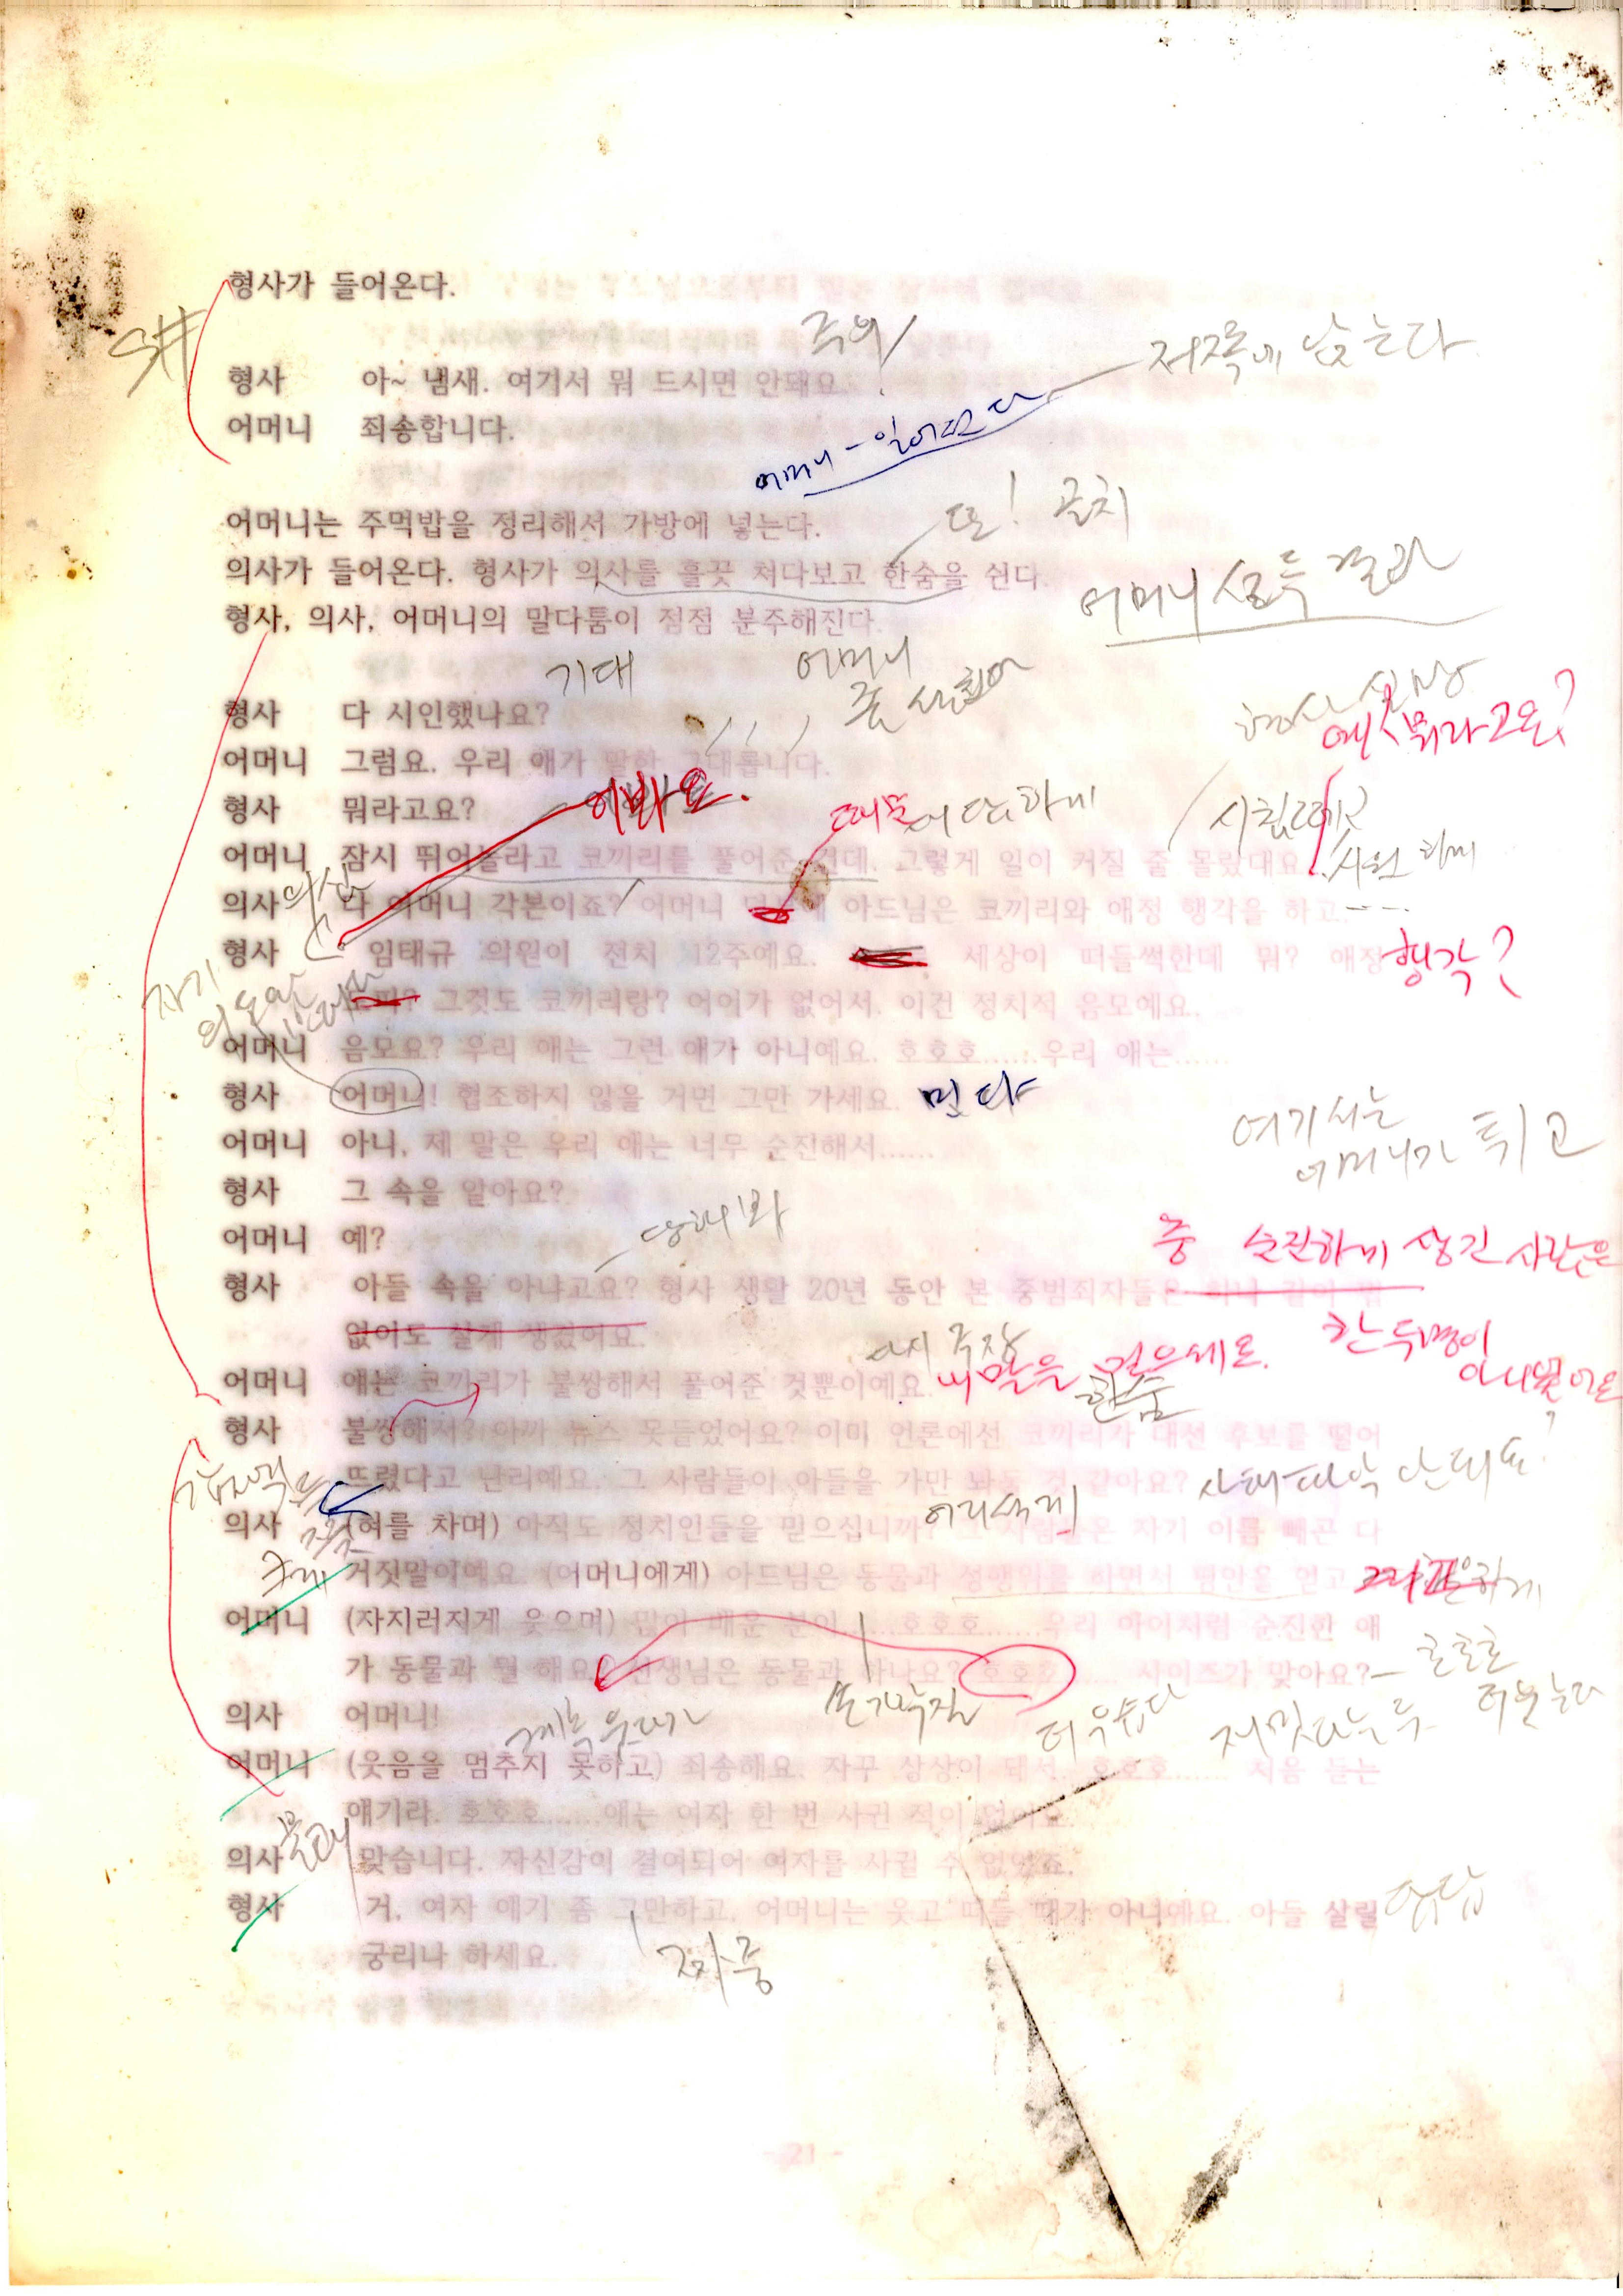 형사가 들어온다.
S#
주의
저쪽에 남는다
형사 아~ 냄새. 여기서 뭐 드시면 안돼요.
어머니 죄송합니다.
어머니 - 일어난다
또! 골치
어머니는 주먹밥을 정리해서 가방에 넣는다.
의사가 들어온다. 형사가 의사를 흘끗 쳐다보고 한숨을 쉰다.
형사, 의사, 어머니의 말다툼이 점점 분주해진다.
기대
어머니
형사 실망
형사 다 시인했나요?
예? 뭐라고요?
어머니 그럼요. 우리 애가 말한 그대롭니다.
이봐요.
때문에
형사 뭐라고요?
어머니 잠시 뛰어놀라고 코끼리를 풀어준 건데. 그렇게 일이 커질 줄 몰랐대요.
의사 다 어머니 각본이죠? 어머니 아드님은 코끼리와 애정 행각을 하고
형사 임태규 의원이 전치 12주예요. 세상이 떠들썩한데 뭐? 애정
행각?
그것도 코끼리랑? 어이가 없어서. 이건 정치적 음모예요.
자기
어머니 음모요? 우리 애는 그런 애가 아니예요. 호호호......우리 애는......
형사 어머니! 협조하지 않을 거면 그만 가세요.
민다
어머니 아니, 제 말은 우리 애는 너무 순진해서......
여기서는
어머니가 튀고
형사 그 속을 알아요?
당해봐
어머니 예?
중 순진하게 생긴 사람은
형사 아들 속을 아냐고요? 형사 생활 20년 동안 본 중범죄자들은 하나 같이 법
없이도 살게 생겼어요.
한 두명이
아니었어요
어머니 얘는 코끼리가 불쌍해서 풀어준 것뿐이예요.
내 말을 믿으세요.
한숨
형사 불쌍해서? 아까 뉴스 못들었어요? 이미 언론에선 코끼리가 대선 후보를 떨어
뜨렸다고 난리예요. 그 사람들이 아들을 가만 놔둘 것 같아요?
사태파악 안돼요?
의사 (혀를 차며) 아직도 정치인들을 믿으십니까? 그 사람들은 자기 이름 빼곤 다
거짓말이예요. (어머니에게) 아드님은 동물과 성행위를 하면서 평안을 얻고
어머니 (자지러지게 웃으며) 많이 배운 분이......호호호......우리 아이처럼 순진한 애
가 동물과 뭘 해요? 선생님은 동물과 하나요? 호호호...... 사이즈가 맞아요?
호호호
손가락질
더 우습다
의사 어머니!
계속 웃다가
재밌다는 듯
어머니 (웃음을 멈추지 못하고) 죄송해요. 자꾸 상상이 돼서. 호호호...... 처음 듣는
얘기라. 호호호......애는 여자 한 번 사귄 적이 없어요.
의사 맞습니다. 자신감이 결여되어 여자를 사귈 수 없었죠.
형사 거, 여자 얘기 좀 그만하고, 어머니는 웃고 떠들 때가 아니예요. 아들 살릴
답답
궁리나 하세요.
짜증
- 21 -